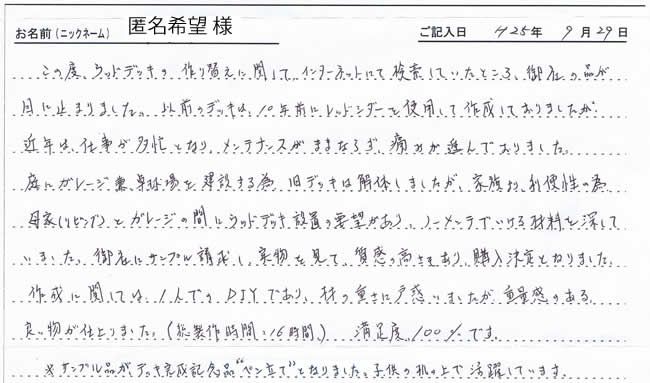 お名前(ニックネーム) 匿名希望 様 ご記入日 H25年 9月29日
この度、ウッドデッキの作り替えに関して、インターネットにて検索していたところ、御社の品が
目に止まりました。以前のデッキは、10年前にレッドシダーを使用して作成しておりましたが
近年は、仕事が多忙となり、メンテナンスがままならず、痛みが進んでおりました。
庭にガレージ兼卓球場を建設する為、旧デッキは解体しましたが、家族より、利便性の為
母家(リビング)とガレージの間にウッドデッキ設置の要望があり、ノーメンテでいける材料を探して
いました。御社にサンプル請求し、実物を見て、質感の高さもあり、購入決定となりました。
作成に関しては、1人でのDIYであり、材の重さに戸惑いましたが重量感のある
良い物が仕上りました。(総製作時間:16時間) 満足度 100%です。
※サンプル品がデッキ完成記念品"ペン立て"となりました。子供の机の上で活躍しています。